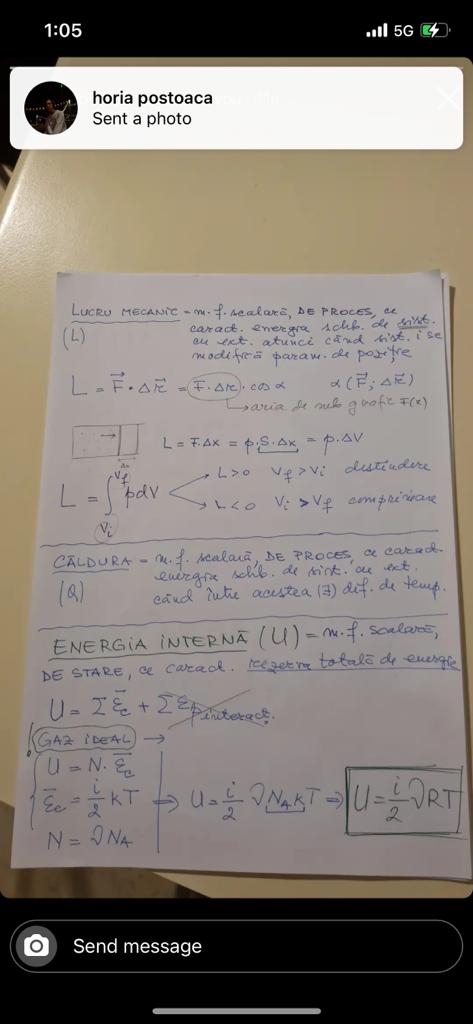 1:05
5G
horia postoaca
Sent a photo
LUCRU MECANIC = m.f. scalară, DE PROCES, ce
(L) caract. energia schb. de sist.
cu ext. atunci când sist. i se
modifică param. de poziție
L = F⃗ · Δr⃗ = F·Δr · cos α α (F⃗; Δr⃗)
→ aria de sub grafic F(x)
Δx
L = F·Δx = p·S·Δx = p·ΔV
L = ∫ pdV
Vf
Vi
L>0 Vf>Vi destindere
L<0 Vi>Vf comprimare
CĂLDURA = m.f. scalară, DE PROCES, ce caract.
(Q) energia schb. de sist. cu ext.
când între acestea (∃) dif. de temp.
ENERGIA INTERNĂ (U) = m.f. scalară,
DE STARE, ce caract. rezerva totală de energie
U = Σ Ēc + Σ Ep interact.
! GAZ IDEAL →
U = N· Ēc
Ēc = i/2 kT ⇒ U = i/2 νNAkT ⇒ U = i/2 νRT
N = νNA
Send message